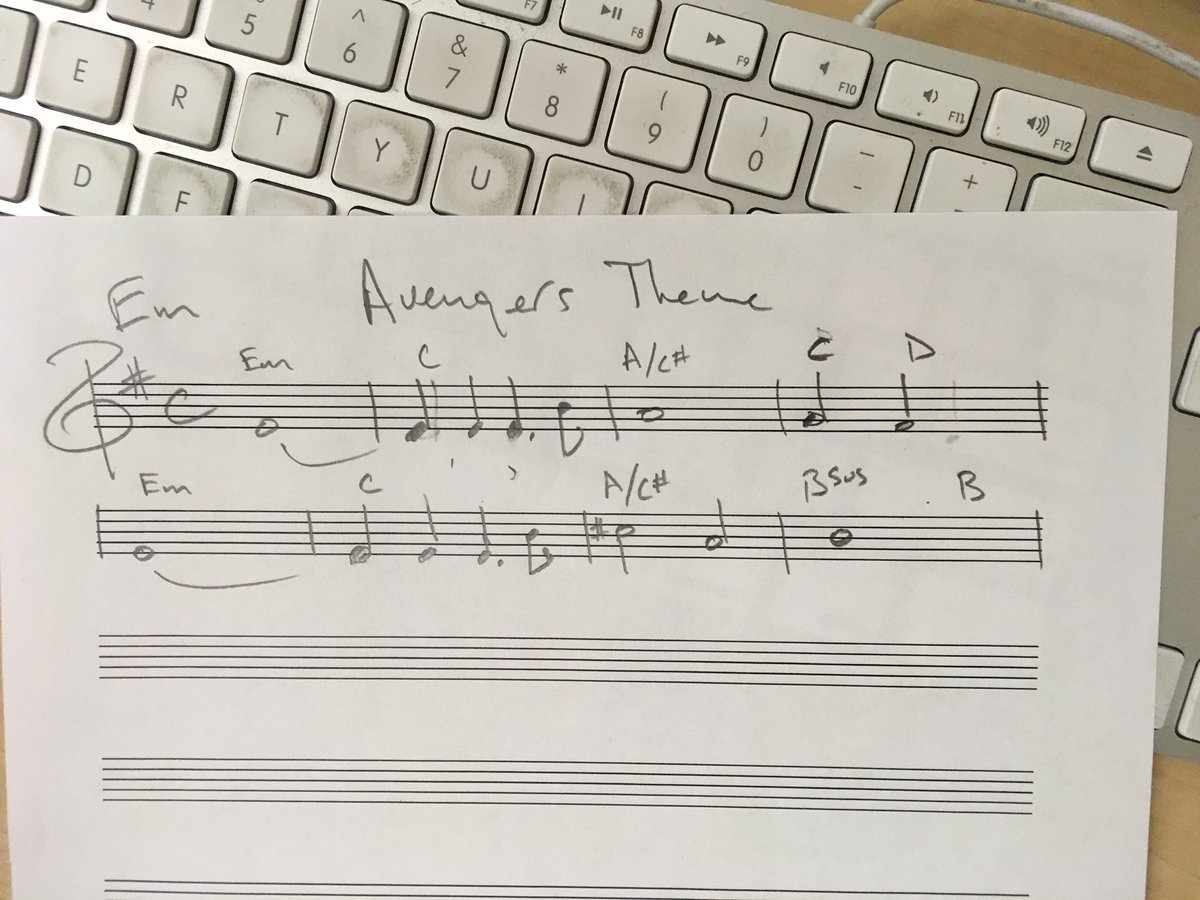 4 5 ^ 6 & 7 * 8 ( 9 ) 0 - +
F7 F8 F9 F10 F11 F12
E R T Y U I
D F
Em Avengers Theme
Em C A/C# C D
Em C A/C# Bsus B